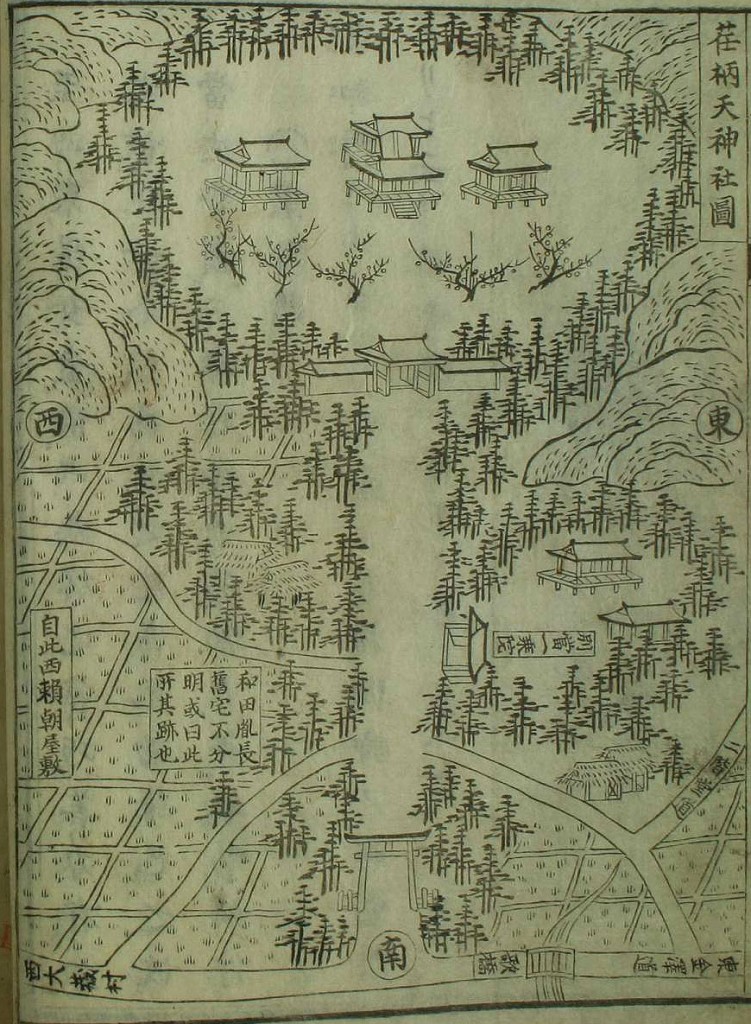 荏柄天神社圖
東
西
別當一乘院
和田胤長
舊宅不分
明或曰此
所其跡也
自此西賴朝屋敷
二階堂道
東金澤道
歌橋
南
西大藏村